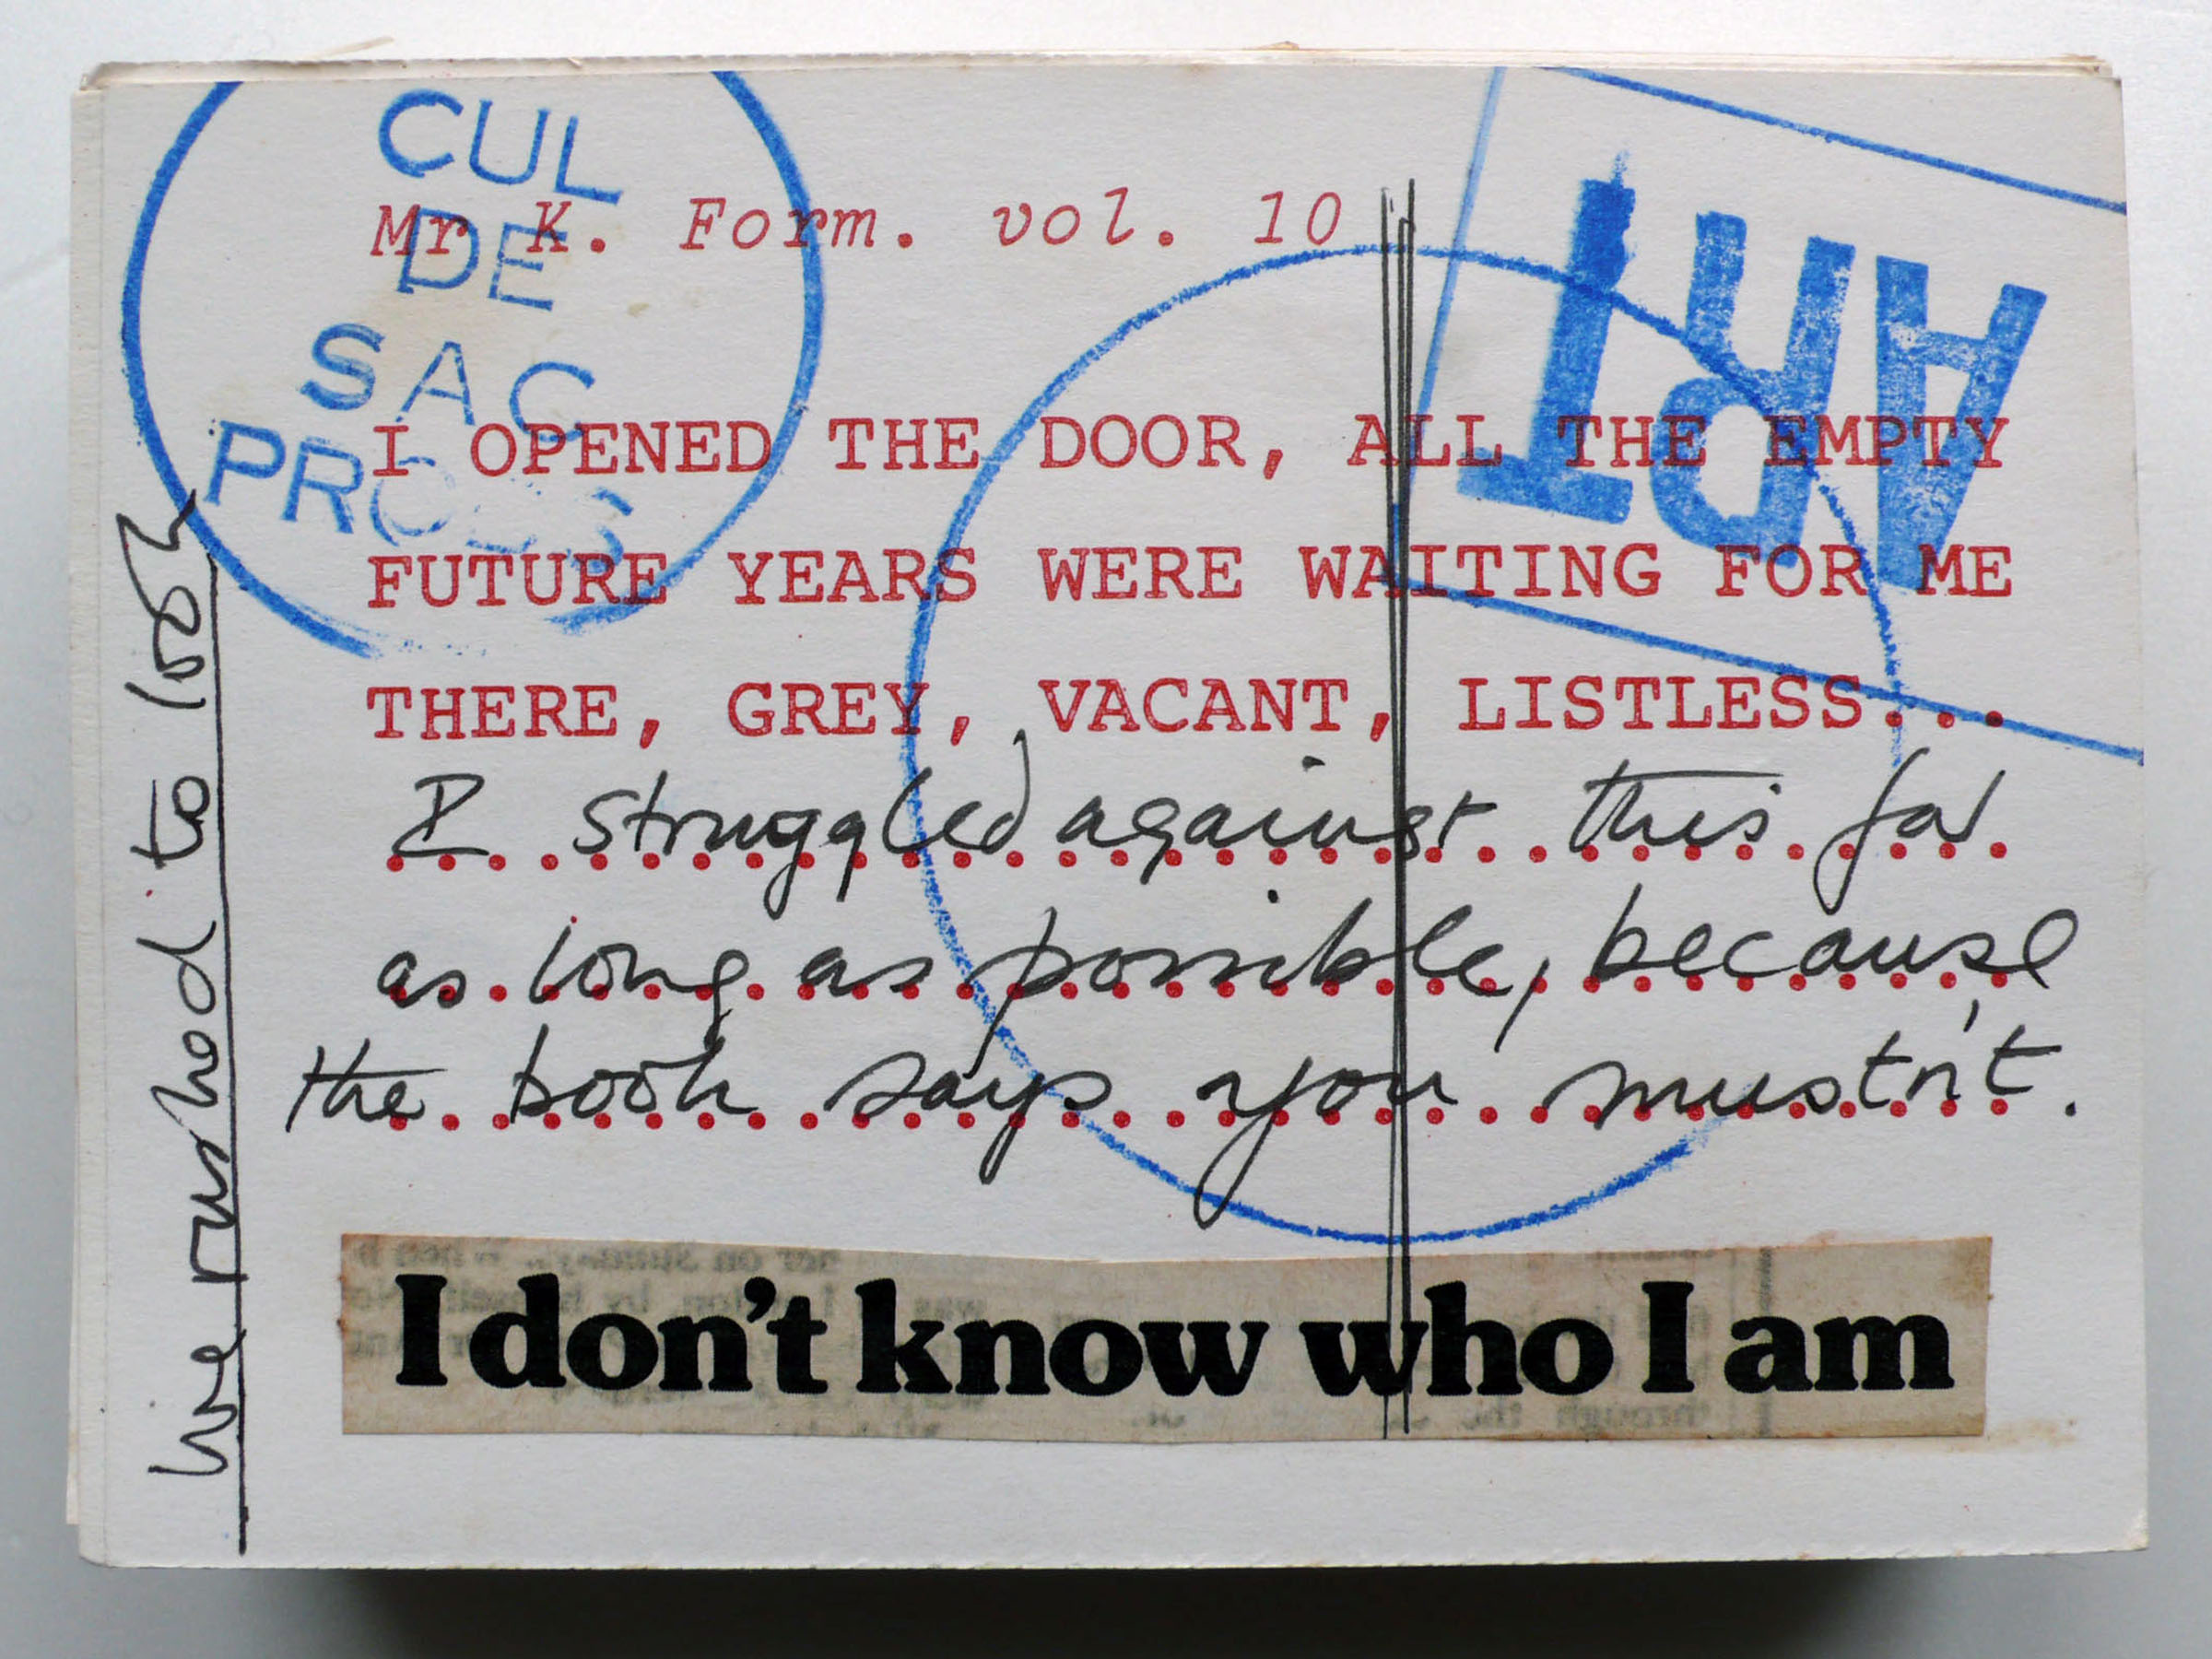 CUL
DE
SAC
PRESS
ART
Mr K. Form. vol. 10
I OPENED THE DOOR, ALL THE EMPTY
FUTURE YEARS WERE WAITING FOR ME
THERE, GREY, VACANT, LISTLESS...
I struggled against this for
as long as possible, because
the book says you mustn't.
I don't know who I am
We rushed to look